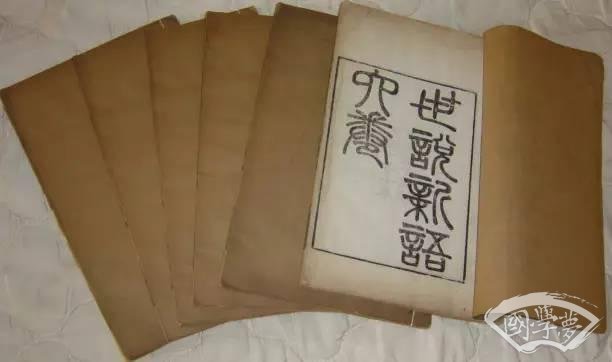 世說新語
六卷
國學夢